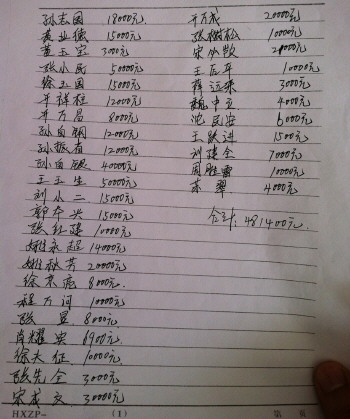 孙志国 18000元
黄业德 15000元
黄玉宝 3000元
张小民 50000元
徐卫国 15000元
亓祥柱 12000元
亓万昌 8000元
孙白钢 12000元
孙振省 12000元
孙白银 40000元
王玉生 50000元
刘小二 15000元
郭本兴 15000元
张红建 10000元
姚永超 14000元
姚秋芳 20000元
徐京亮 8000元
程万问 10000元
张昱 8000元
肖耀安 6900元
徐大征 10000元
张先全 3000元
宋成文 30000元
亓万成 20000元
张树松 10000元
宋 20000元
王居平 10000元
薛运来 3000元
魏中立 4000元
沈民生 6000元
王跃进 1500元
刘建全 7000元
周胜雷 10000元
苏翠 4000元
合计：481400元
HXZP- (1) 第 页